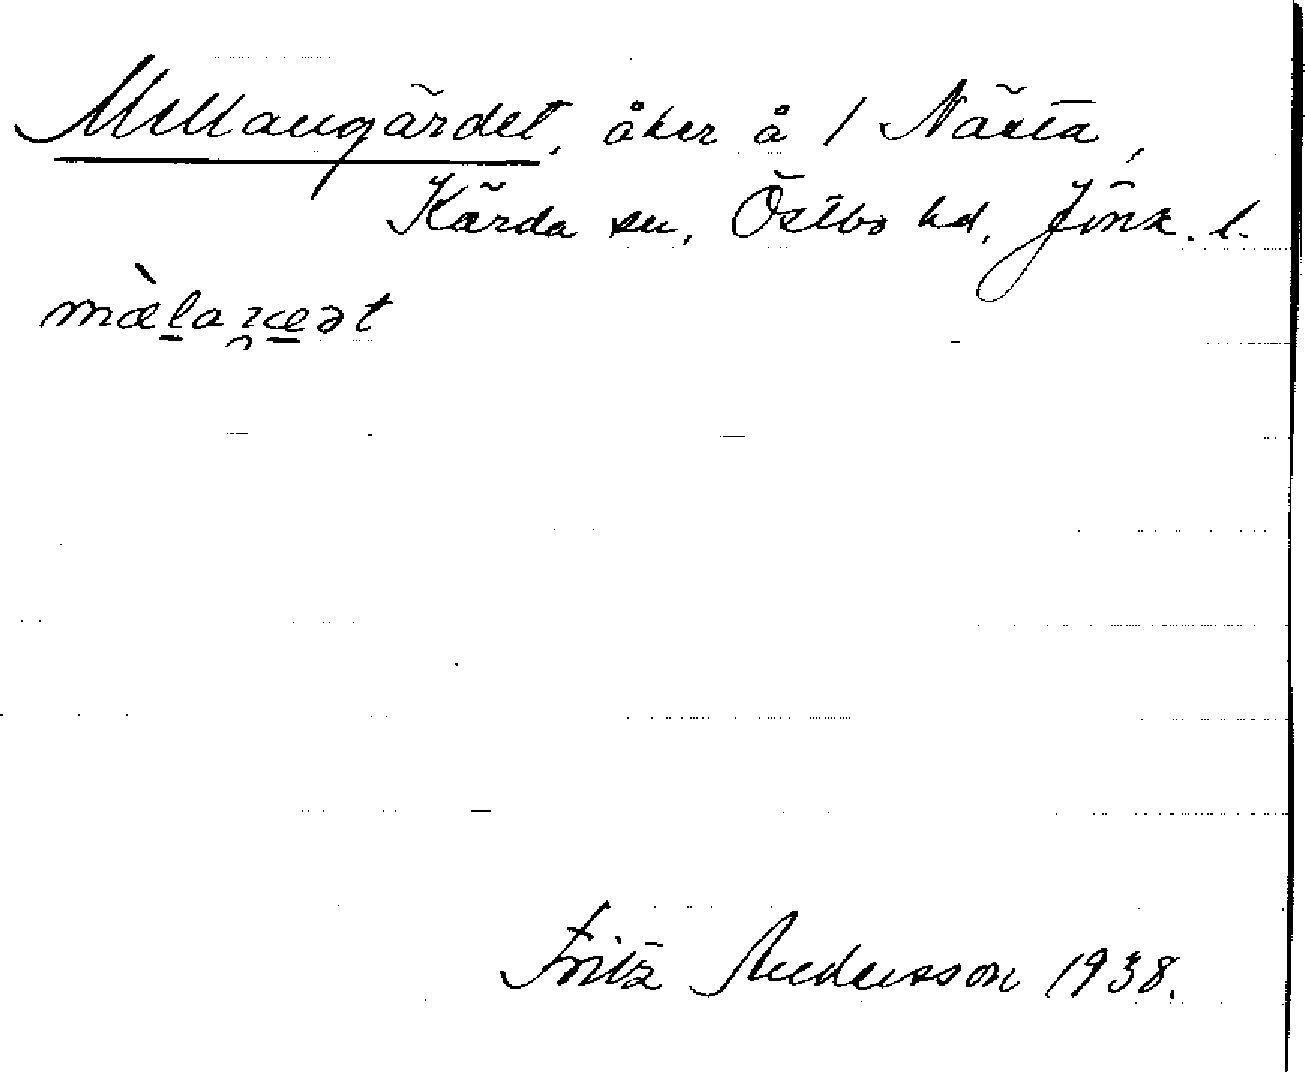 Mellangärdet, åker å 1 Nästa,
Kärda sn, Östbo hd, Jönk. l.
Fritz Andersson 1938.